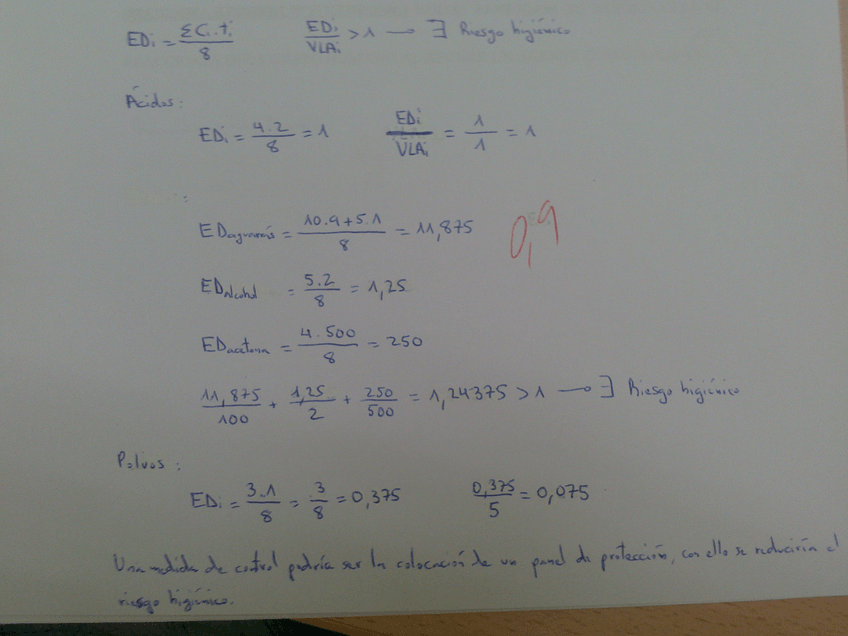 EDi = ΣCi·ti / 8    EDi / VLAi > 1 → ∃ Riesgo higiénico
Ácidos:
EDi = 4·2 / 8 = 1    EDi / VLAi = 1 / 1 = 1
:
EDaguarrás = 10·9+5·1 / 8 = 11,875    0,9
EDalcohol = 5·2 / 8 = 1,25
EDacetona = 4·500 / 8 = 250
11,875 / 100 + 1,25 / 2 + 250 / 500 = 1,24375 > 1 → ∃ Riesgo higiénico
Polvos:
EDi = 3·1 / 8 = 3 / 8 = 0,375    0,375 / 5 = 0,075
Una medida de control podría ser la colocación de un panel de protección, con ello se reduciría el
riesgo higiénico.